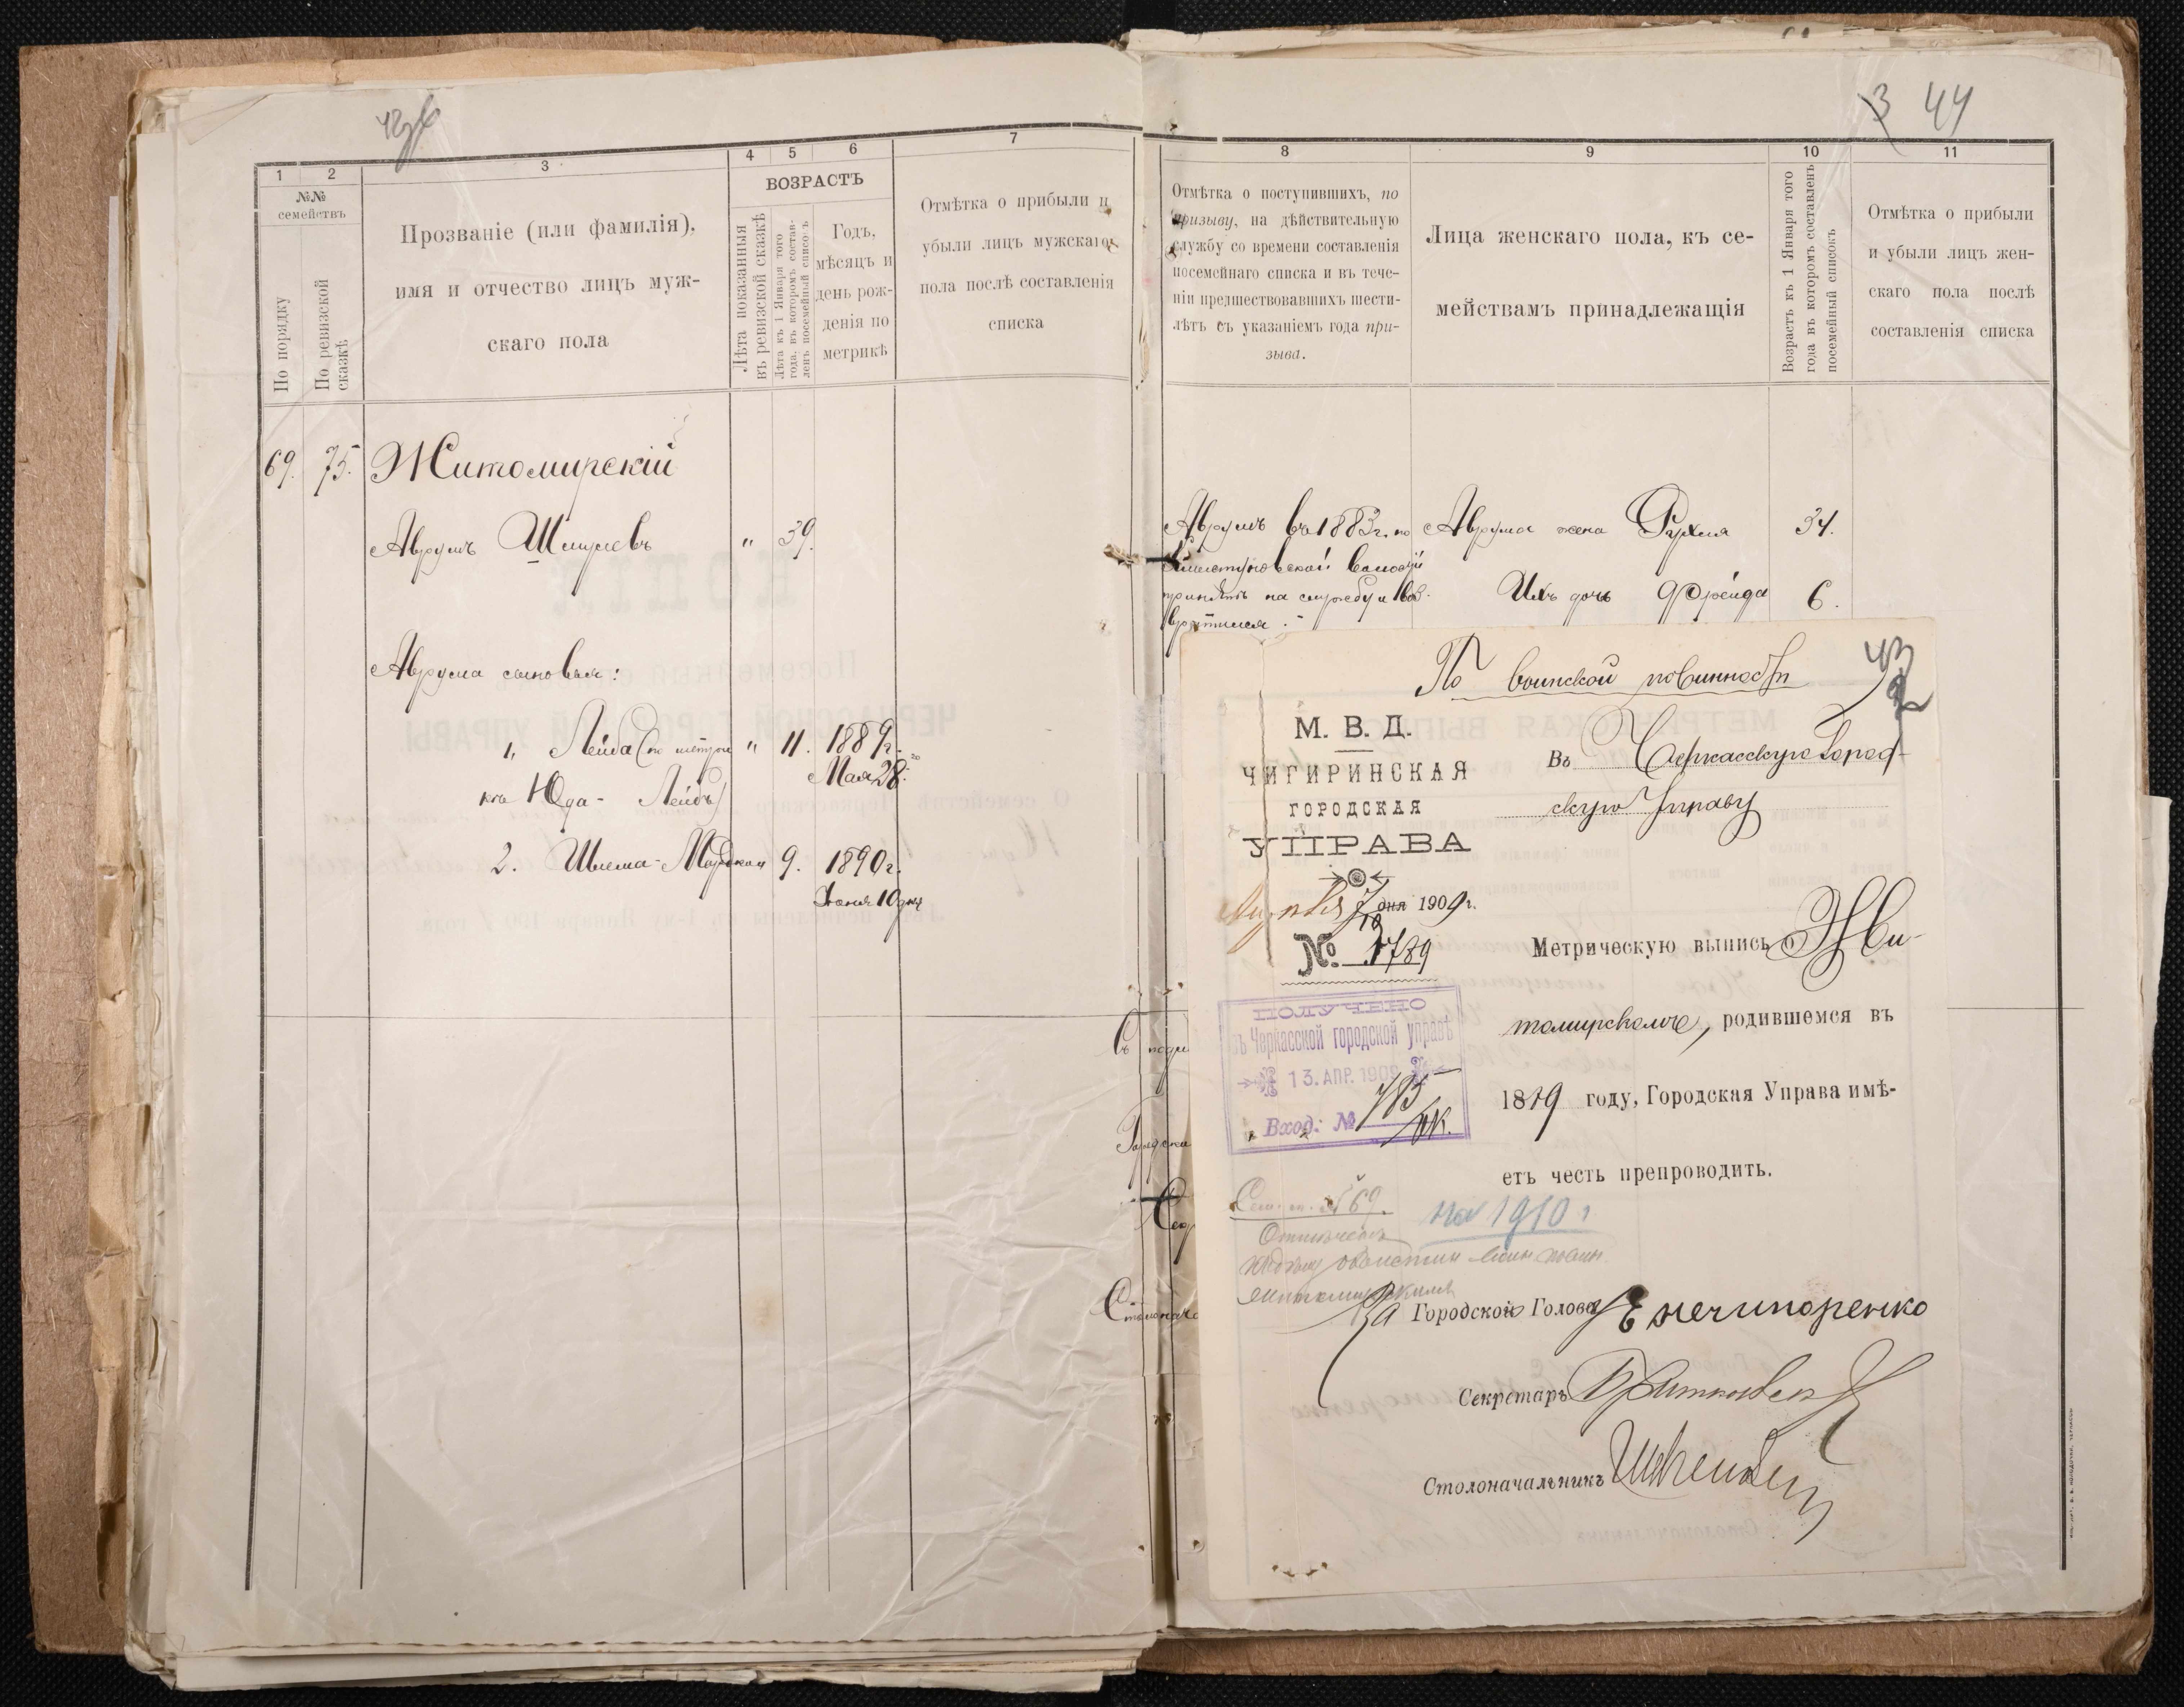 3 44
1
2
3
4
5
6
7
№№
семействъ
По порядку
По ревизской
сказкѣ
Прозваніе (или фамилія),
имя и отчество лицъ муж-
скаго пола
ВОЗРАСТЪ
Лѣта показанныя
въ ревизской сказкѣ
Лѣта къ 1 Января того
года, въ которомъ состав-
ленъ посемейный списокъ
Годъ,
мѣсяцъ и
день рож-
денія по
метрикѣ
Отмѣтка о прибыли и
убыли лицъ мужскаго
пола послѣ составленія
списка
69. 75. Житомирскій
Аврумъ Шмулевъ " 39.
Аврума сыновья:
1, Лейба (по метри " 11. 1889 г.
кѣ Юда- Лейбъ) Мая 28.
2. Шлема-Мордкои 9. 1890 г.
Іюня 10 дня
8
9
10
11
Отмѣтка о поступившихъ, по
призыву, на дѣйствительную
службу со времени составленія
посемейнаго списка и въ тече-
ніи предшествовавшихъ шести-
лѣтъ съ указаніемъ года при-
зыва.
Лица женскаго пола, къ се-
мействамъ принадлежащія
Возрастъ къ 1 Января того
года въ которомъ составленъ
посемейный списокъ
Отмѣтка о прибыли
и убыли лицъ жен-
скаго пола послѣ
составленія списка
Аврумъ въ 1883 г. по
волости
принятъ на службу и воз-
вратился.
Аврума жена Рухля 34.
Ихъ дочь Фрейда 6.
По воинской повинности
43
М. В. Д.
ЧИГИРИНСКАЯ
ГОРОДСКАЯ
УПРАВА
Апрѣля 7 дня 1909 г.
№ 1789
Въ Черкасскую Город-
скую Управу
Метрическую выпись о Жи-
томирскомъ, родившемся въ
1889 году, Городская Управа имѣ-
етъ честь препроводить.
ПОЛУЧЕНО
въ Черкасской городской управѣ
13. АПР. 1909
Вход: № 785
Сем. сп. № 69.
на 1910 г
За Городской Голова Е Нечипоренко
Секретарь
Столоначальникъ